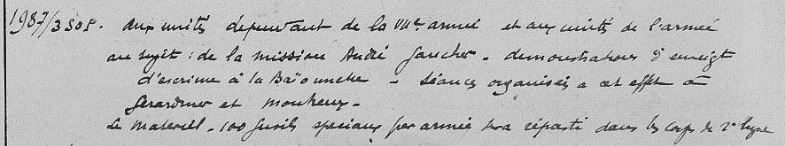 1987/3 S O S. aux unités dépendant de la VIIe armée et aux unités de l'armée
au sujet : de la mission André Gaucher - démonstrations d'enseigt
d'escrime à la Baïonnette - séances organisées a cet effet à
Gérardmer et Montreux -
Le matériel - 100 fusils spéciaux par armée sera réparti dans les corps de 2e ligne